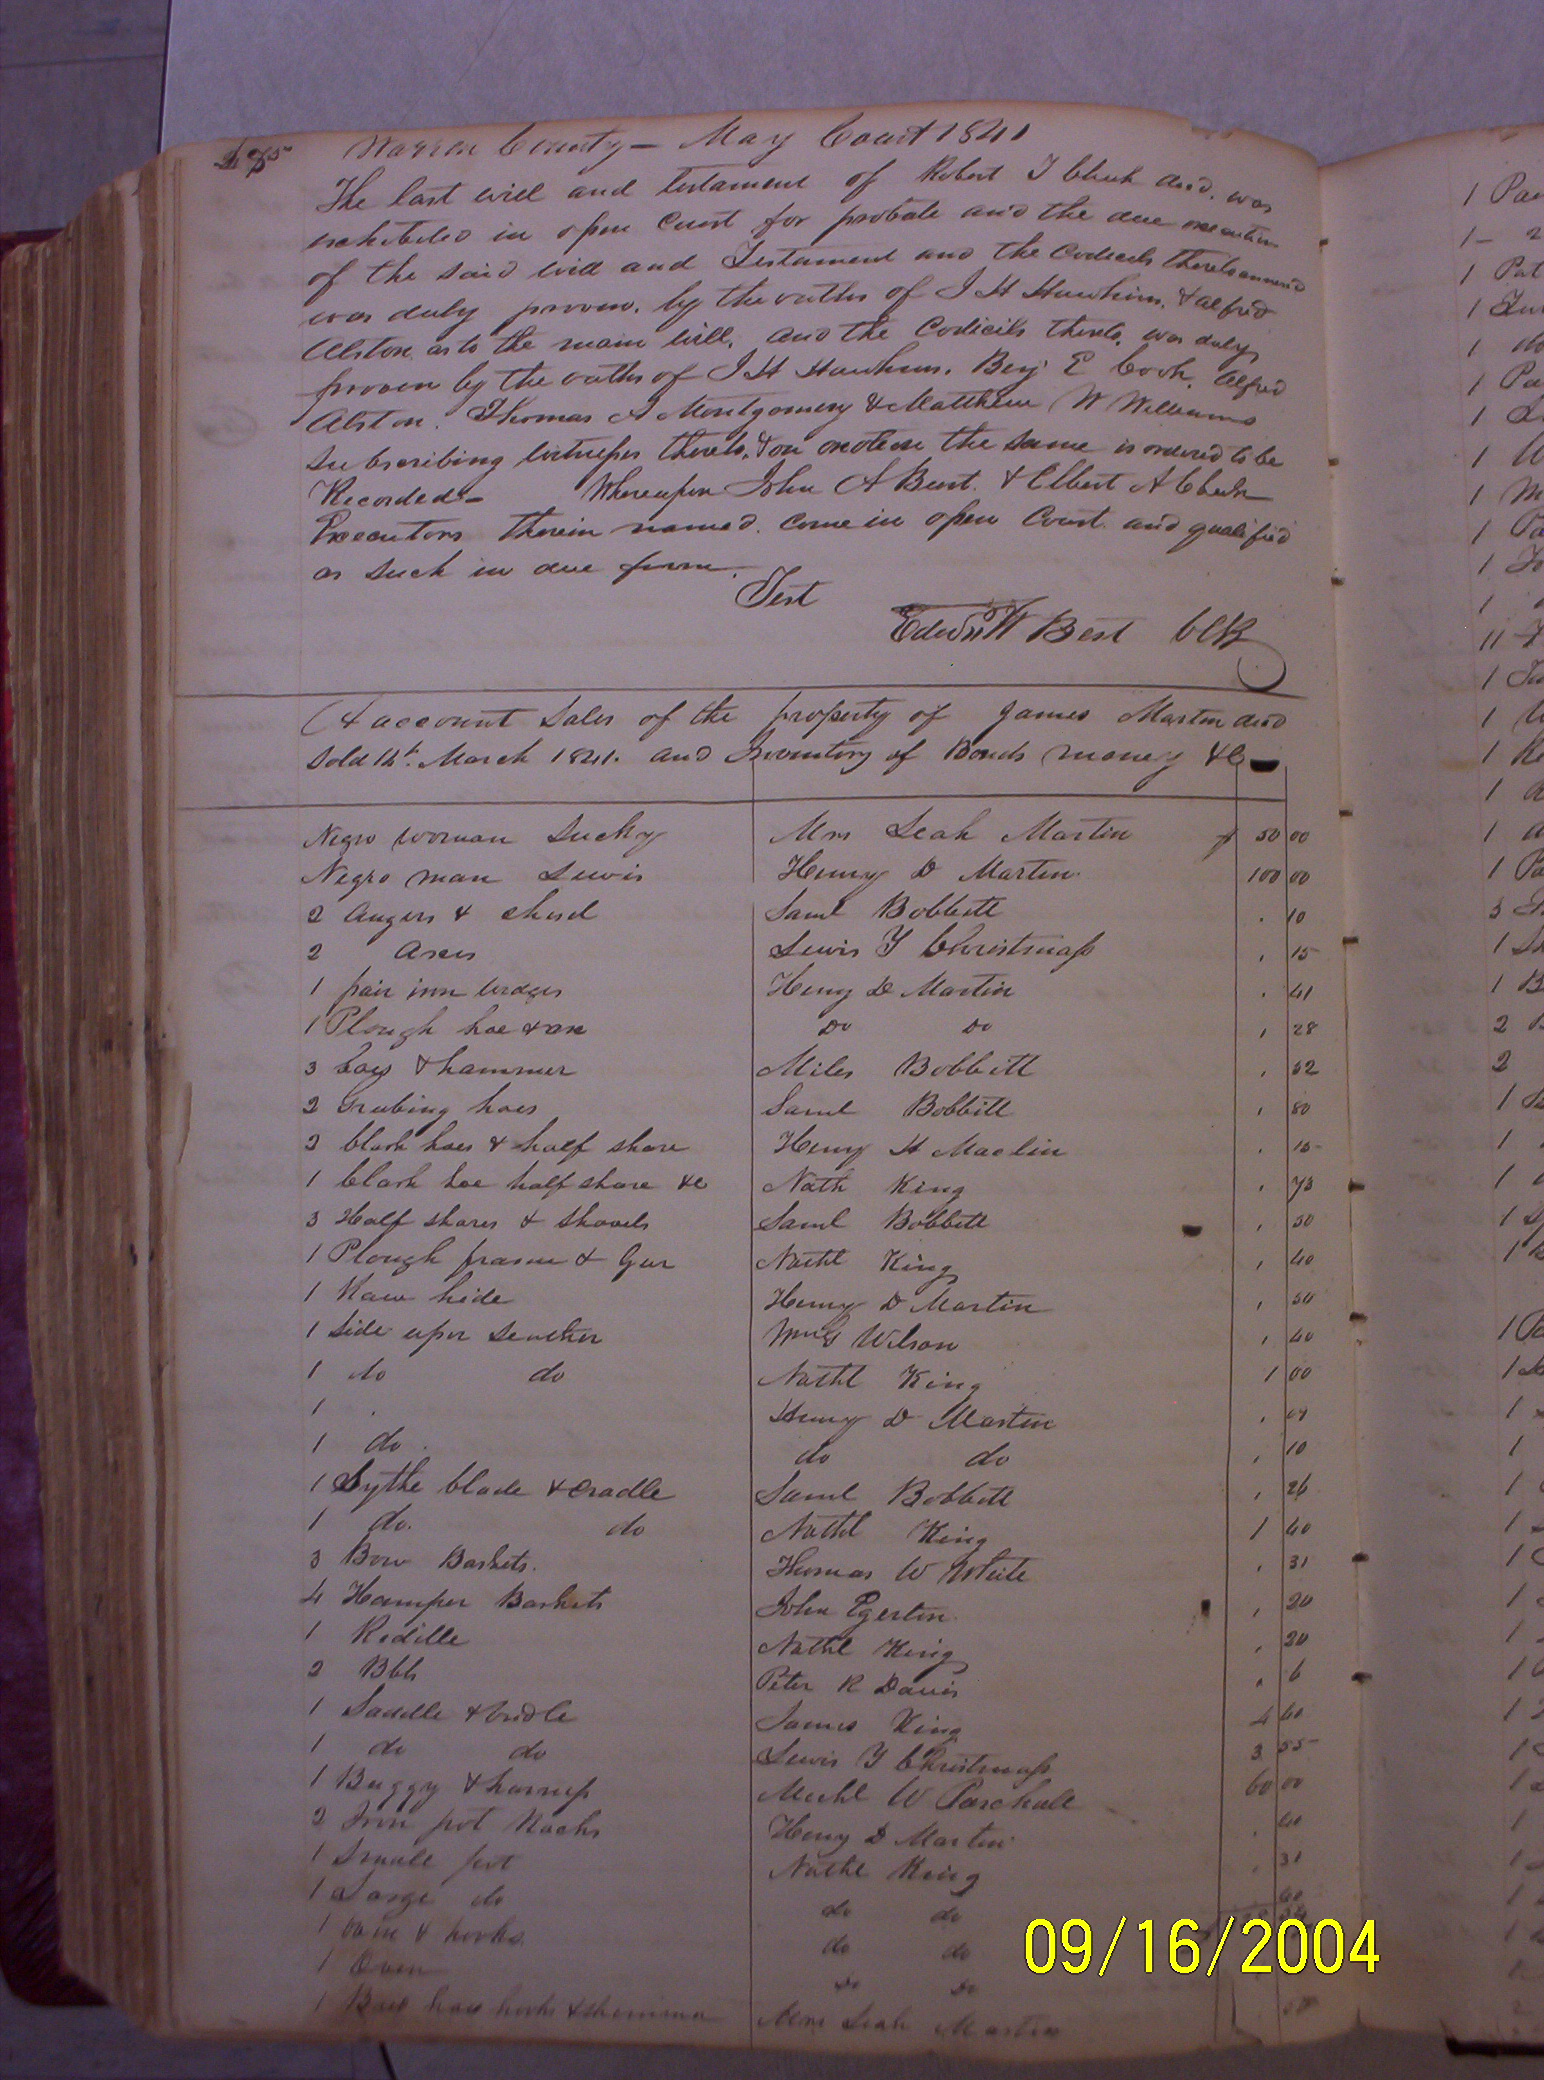 Warren County — May Court 1841
The last will and testament of Robert T Cheek decd. was
exhibited in open Court for probate and the due execution
of the said will and Testament and the Codicils thereto annexed
was duly proven. by the oaths of J H Hawkins. & Alfred
Alston as to the main will. and the Codicils thereto. was duly
proven by the oaths of J H Hawkins. Benj E Cook. Alfred
Alston. Thomas A Montgomery & Matthew W Williams
Subscribing witnesses thereto. & on motion the same is ordered to be
Recorded — Whereupon John A Burt. & Elbert A Cheek
Executors therein named. came in open Court and qualified
as such in due form.
Test
Edwd W Best Clk
account Sales of the property of James Martin decd
Sold 12th. March 1841. and Inventory of Bonds money &C
Negro woman Sucky Mrs Leah Martin $ 50 00
Negro man Lewis Henry D Martin 100 00
2 augers & chisel Saml Bobbitt . 10
2 axes Lewis Y Christmass , 15
1 pair iron wedges Henry D Martin . 41
1 Plough hoe & axe Do Do , 28
3 hoes & hammer Miles Bobbitt , 52
2 Grubing hoes Saml Bobbitt , 80
2 black hoes & half share Henry H Maclin . 15
1 black hoe half share &c Nath King , 73
3 Half shares & Shovels Saml Bobbitt , 50
1 Plough frame & Gear Nathl King , 40
1 Raw hide Henry D Martin , 50
1 Side uper Leather Wm G Wilson , 40
1 do do Nathl King 1 00
1 Henry D Martin ,
1 do . do do , 10
1 Sythe blade & cradle Saml Bobbitt , 26
1 do. do Nathl King 1 40
3 Bow Baskets. Thomas W White , 31
4 Hamper Baskets John Egerton , 20
1 Riddle Nathl King , 20
2 Bbls Peter R Davis , 6
1 Saddle & bridle James King 4 60
1 do do Lewis Y Christmass 3 55
1 Buggy & harness Michl W Paschall 60 00
2 Iron pot Racks Henry D Martin . 40
1 Small pot Nathl King , 31
1 Large do do do 60
1 & hooks do do
1 Oven Do Do
1 hooks & Mrs Leah Martin 50
09/16/2004